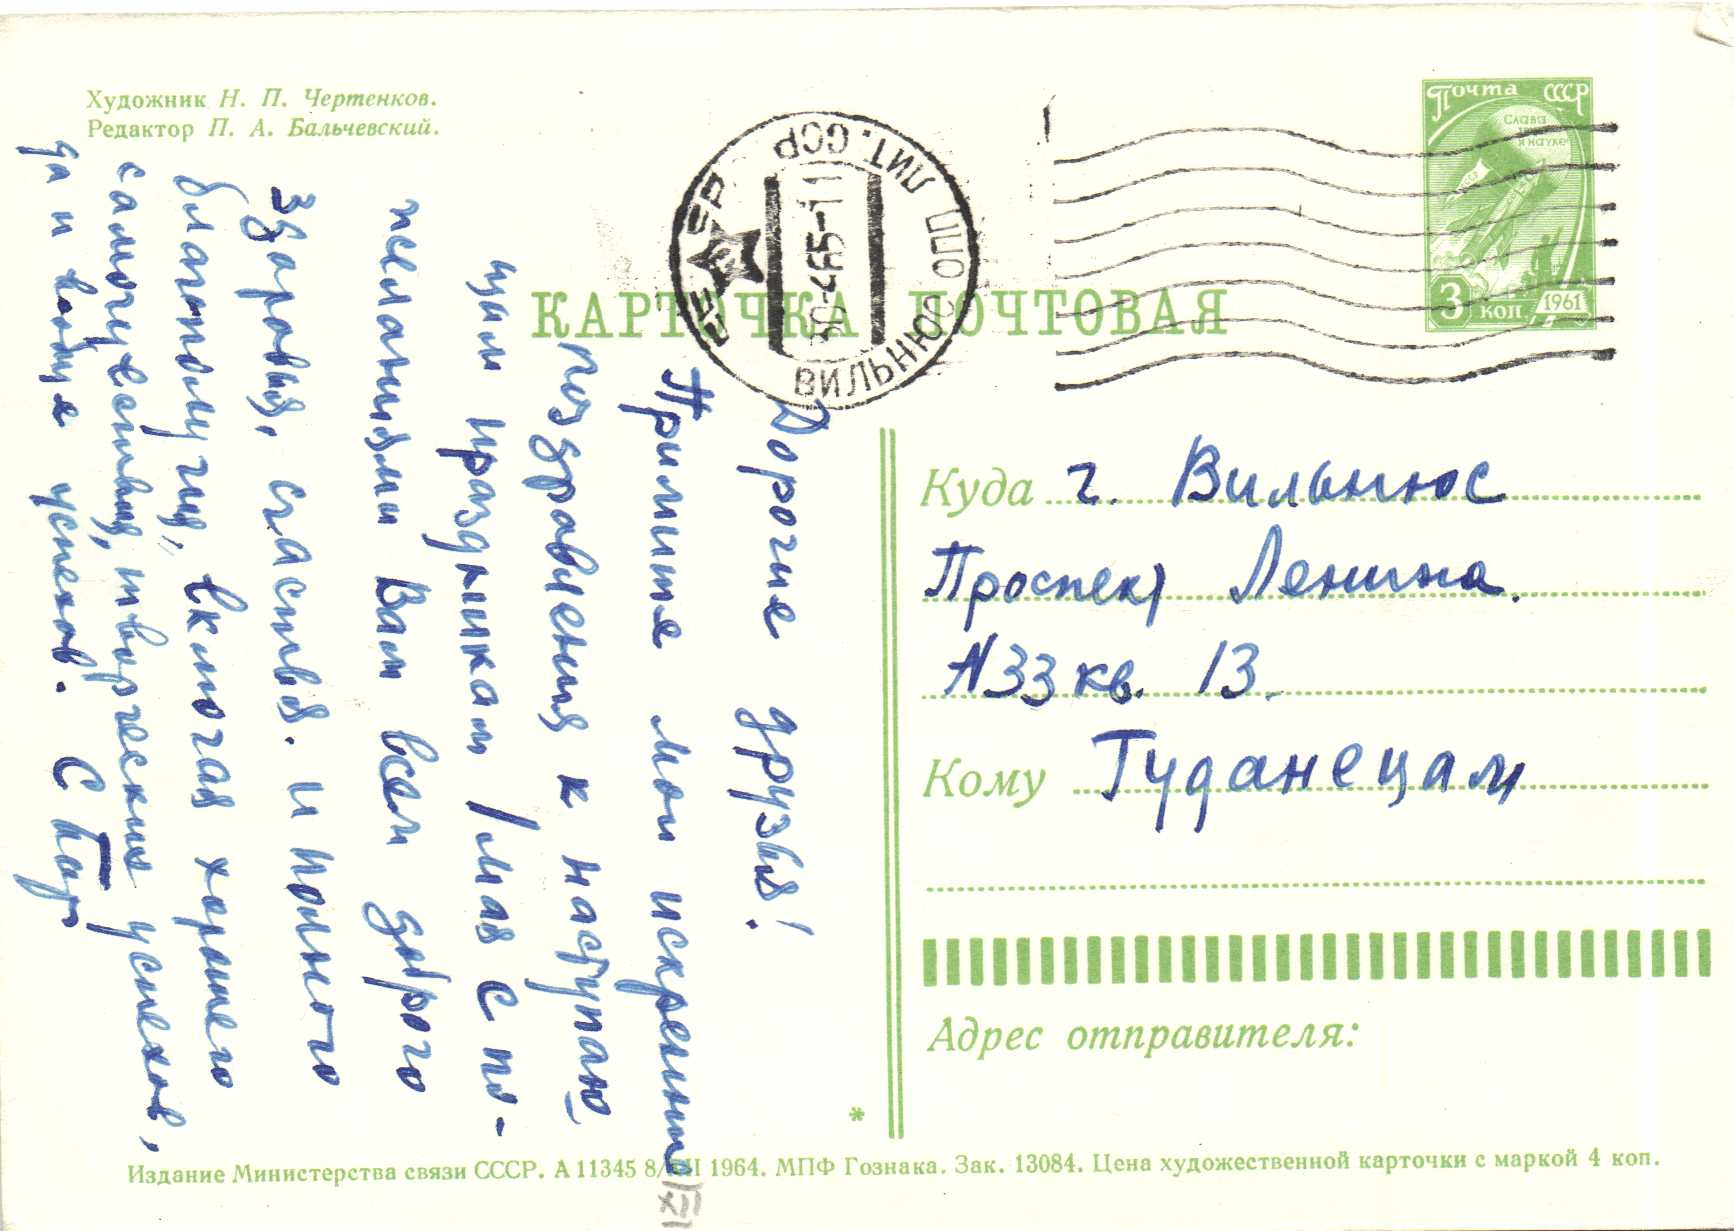 Художник Н. П. Чертенков.
Редактор П. А. Бальчевский.
Почта СССР
Слава
науке
3 коп. 1961
СССР
ВИЛЬНЮС ПО ЛИТ. ССР
30-465-11
КАРТОЧКА ПОЧТОВАЯ
Дорогие друзья!
Примите мои искренние
поздравления к наступаю
щим праздникам 1 мая с по-
желаниями Вам всем доброго
здоровья, счастья. и полного
благополучия, включая хорошего
самочувствия, творческих успехов,
да и вообще успехов. С
Куда г. Вильнюс
Проспект Ленина.
N33 кв. 13.
Кому Гуданецам
Адрес отправителя:
*
Издание Министерства связи СССР. А 11345 8/XII 1964. МПФ Гознака. Зак. 13084. Цена художественной карточки с маркой 4 коп.
XII